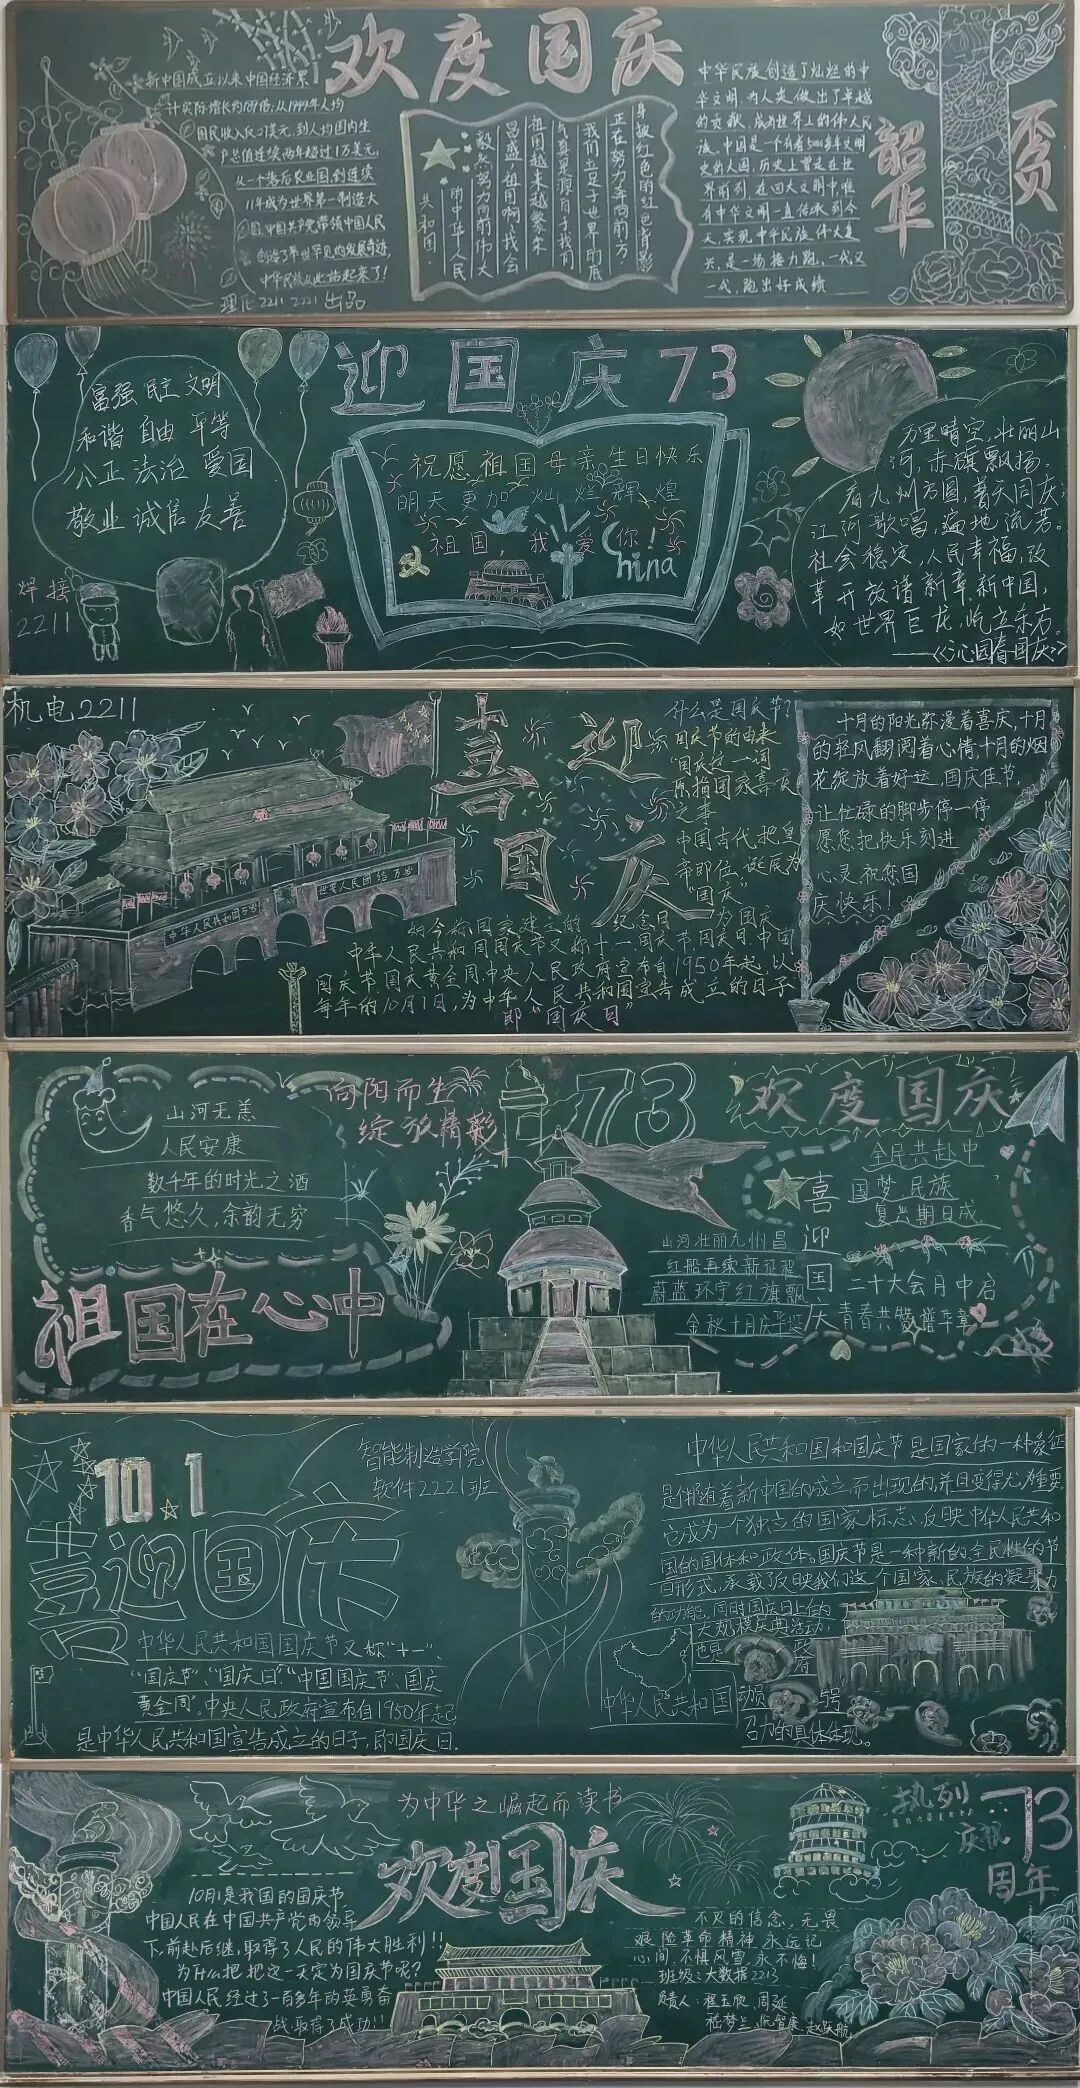 欢度国庆
新中国成立以来中国经济累
计实际增长约189倍,从1949年人均
国民收入仅27美元,到人均国内生
产总值连续两年超过1万美元,
从一个落后农业国,到连续
11年成为世界第一制造大
国,中国共产党带领中国人民
创造了举世罕见的发展奇迹,
中华民族从此站起来了!
理化2211 2221 出品
身披红色的红色背影
正在努力奔向前方,
我们立足于世界的底
气真是源自于我们
祖国越来越繁荣
昌盛,祖国啊,我会
毅然努力向前伟大
的中华人民
共和国.
中华民族创造了灿烂的中
华文明,为人类做出了卓越
的贡献,成为世界上的伟人民
族,中国是一个有着5000多年文明
史的大国,历史上曾走在世
界前列,在四大文明中唯
有中华文明一直传承到今
天,实现中华民族伟大复
兴,是一场接力跑,一代又
一代,跑出好成绩
韶华
不负
迎国庆 73
富强 民主 文明
和谐 自由 平等
公正 法治 爱国
敬业 诚信 友善
焊接
2211
祝愿祖国母亲生日快乐
明天更加灿烂辉煌
祖国,我爱你!
China
万里晴空,壮丽山
河,赤旗飘扬。
看九州方圆,普天同庆;
江河歌唱,遍地流芳。
社会稳定,人民幸福,改
革开放谱新章,新中国,
如世界巨龙,屹立东方。
——《沁园春国庆》
机电2211
中华人民共和国万岁
世界人民大团结万岁
喜迎
国庆
什么是国庆节?
国庆节的由来
"国庆这一词
原指国家喜庆
之事
中国古代把皇
帝即位、诞辰为
"国庆"
如今称国家建立的纪念日为国庆
中华人民共和国国庆节又称十一、国庆节、国庆日、中国
国庆节、国庆黄金周,中央人民政府宣布自1950年起,以
每年的10月1日,为中华人民共和国宣告成立的日子
即"国庆日"
十月的阳光弥漫着喜庆,十月
的轻风翻阅着心情,十月的烟
花绽放着好运,国庆佳节,
让忙碌的脚步停一停
愿您把快乐刻进
心灵,祝您国
庆快乐!
山河无恙
人民安康
数千年的时光之酒
香气悠久,余韵无穷
祖国在心中
向阳而生
绽放精彩
73
欢度国庆
喜迎国庆
全民共赴中
国梦,民族
复兴期日成,
二十大会月中启
青春共赞谱华章
山河壮丽九州昌
红船再续新征程
蔚蓝环宇红旗飘
金秋十月庆华诞
10.1
喜迎国庆
智能制造学院
软件2221班
中华人民共和国国庆节又称"十一"、
"国庆节"、"国庆日"、"中国国庆节"、国庆
黄金周",中央人民政府宣布自1950年起
是中华人民共和国宣告成立的日子,即国庆日.
中华人民共和国和国庆节是国家的一种象征
是伴随着新中国的成立而出现的,并且变得尤为重要
它成为一个独立的国家标志,反映中华人民共和
国的国体和政体。国庆节是一种新的、全民性的节
日形式,承载了反映我们这个国家、民族的凝聚力
的功能,同时国庆日上的
大规模庆典活动,
也是政府
动员号
召力的具体体现。
中华人民共和国
为中华之崛起而读书
欢度国庆
10月1是我国的国庆节,
中国人民在中国共产党的领导
下,前赴后继,取得了人民的伟大胜利!!
为什么把把这一天定为国庆节呢?
中国人民经过了一百多年的英勇奋
战,取得了成功!!
热烈
庆祝
73
周年
不灭的信念,无畏
艰险革命精神永远记
心间,不惧风雪,永不悔!
班级:大数据2213
负责人:程玉欣、周延
嵇梦兰、阮智康、赵跃航